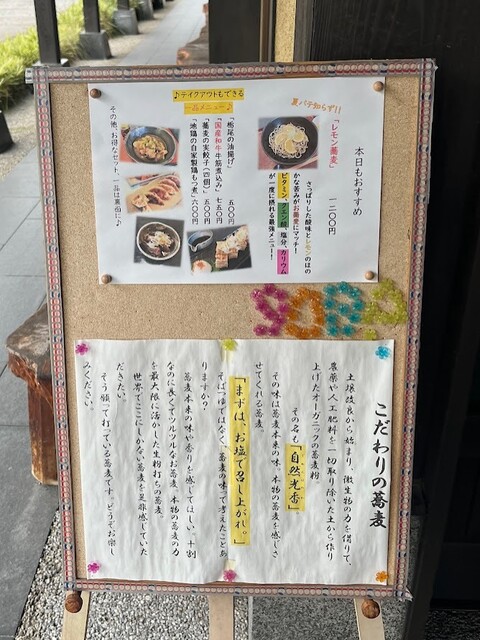 本日もおすすめ
夏バテ知らず!!
「レモン蕎麦」 一二〇〇円
さっぱりした酸味とレモンのほの
かな苦みがお蕎麦にマッチ!
ビタミン、クエン酸、塩分、カリウム
が一度に摂れる最強メニュー!
♪テイクアウトもできる
一品メニュー♪
「栃尾の油揚げ」 五〇〇円
「国産和牛牛筋煮込み」 七五〇円
「蕎麦の実餃子(四個)」 五〇〇円
「地鶏の自家製鶏もつ煮」 六〇〇円
その他、お得なセット、一品は裏面に♪
SOBA
こだわりの蕎麦
土壌改良から始まり、微生物の力を借りて、
農薬や人工肥料を一切取り除いた土から作り
上げたオーガニックの蕎麦粉。
その名も「自然光香」
その味は蕎麦本来の味、本物の蕎麦を感じさ
せてくれる蕎麦。
「まずは、お塩で召し上がれ。」
そばつゆではなく、蕎麦の味で考えたことあ
りますか?
蕎麦本来の味や香りを感じてほしい。十割
なのに長くてツルツルなお蕎麦、本物の蕎麦の力
を最大限に活かした生粉打ちの蕎麦。
世界でここにしかない蕎麦を是非感じていた
だきたい。
そう願って打っている蕎麦です。どうぞお楽し
みください。